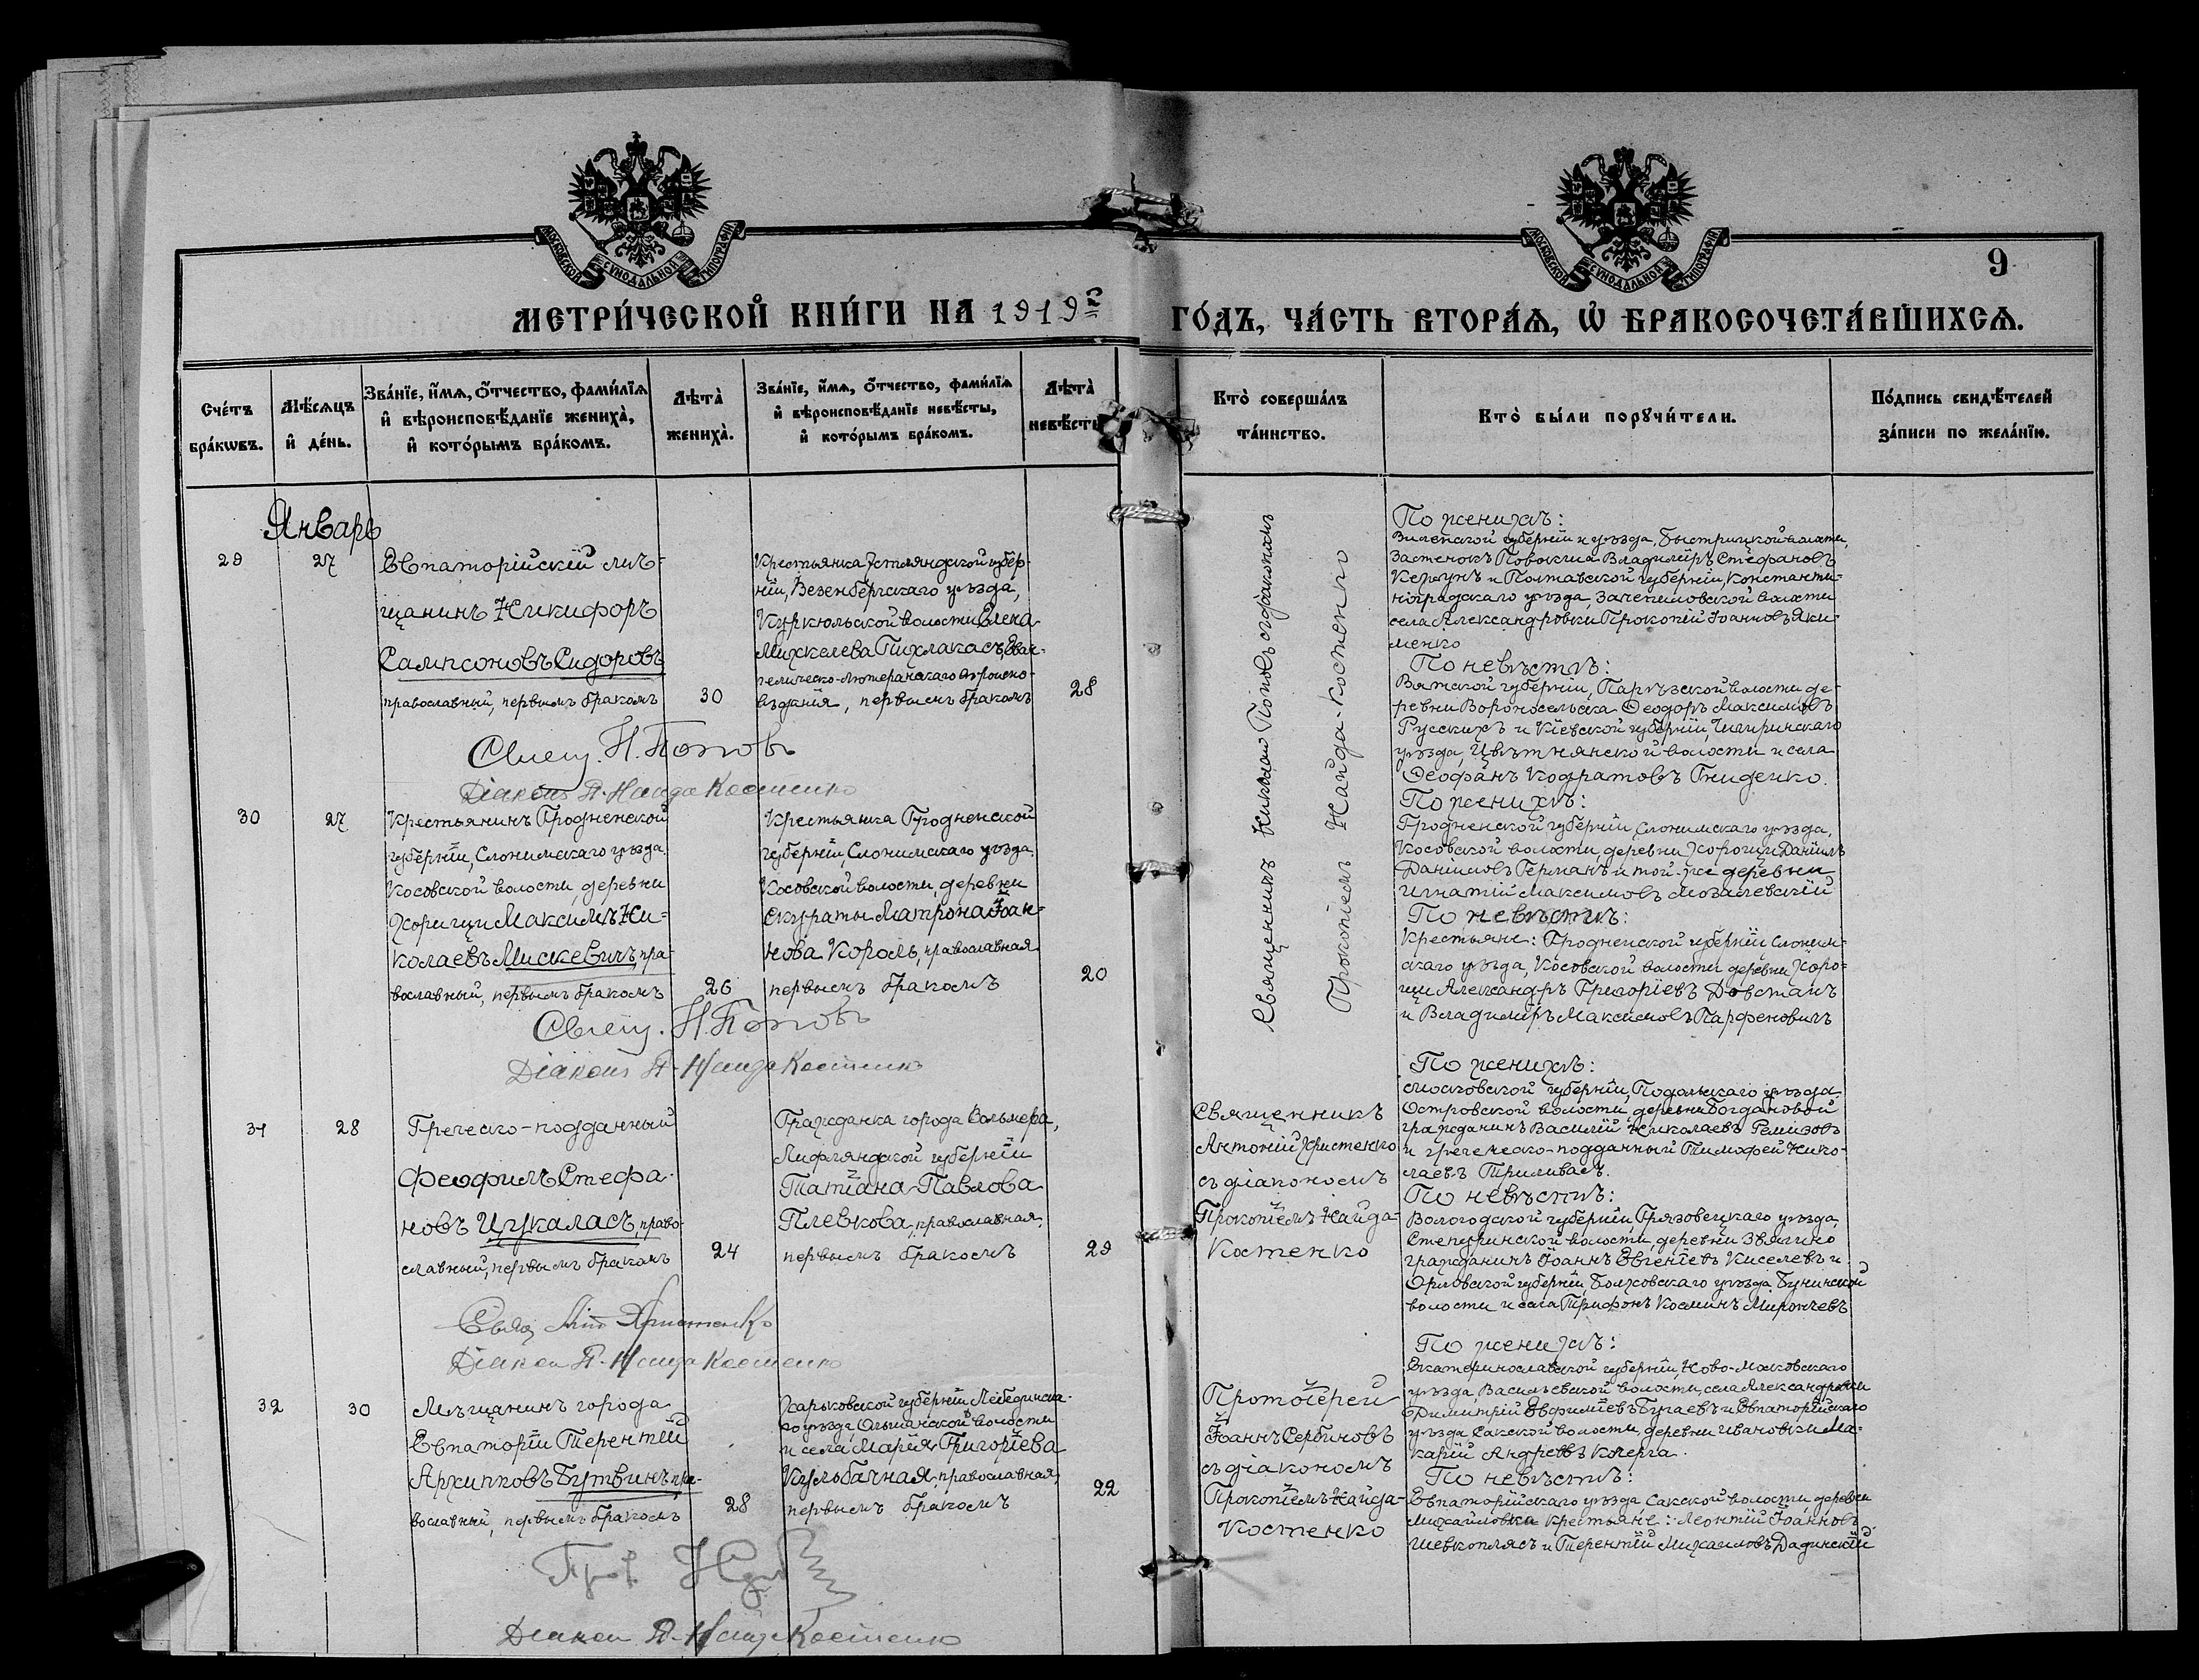 МОСКОВСКОЙ СѴНОДАЛЬНОЙ ТИПОГРАФІИ
МОСКОВСКОЙ СѴНОДАЛЬНОЙ ТИПОГРАФІИ
9
МЕТРИ́ЧЕСКОЙ КНИ́ГИ НА 1919 г ГО́ДЪ, ЧА́СТЬ ВТОРА́Ѧ, Ѡ҆ БРАКОСОЧЕТА́ВШИХСѦ.
Сче́тъ
бра́кѡвъ.
Мѣ́сѧцъ
и҆ де́нь.
Зва́нїе, и҆́мѧ, ѻ҆́тчество, фами́лїѧ
и҆ вѣроисповѣ́данїе жениха̀,
и҆ кото́рымъ бра́комъ.
Лѣта̀
жениха̀.
Зва́нїе, и҆́мѧ, ѻ҆́тчество, фами́лїѧ
и҆ вѣроисповѣ́данїе невѣ́сты,
и҆ кото́рымъ бра́комъ.
Лѣта̀
невѣ́сты
Кто̀ соверша́лъ
та́инство.
Кто̀ бы́ли порꙋчи́тели.
По́дпись свидѣ́телей
за́писи по жела́нїю.
Январь
29
27
Евпаторійскій мѣ-
щанинъ Никифоръ
Сампсоновъ Сидоровъ
православный, первымъ бракомъ
30
Крестьянка Эстляндской губер-
ніи, Везенбергскаго уѣзда,
Куркюльской волости Елена
Михкелева Тихлакасъ, Еван-
гелическо-лютеранскаго вѣроиспо-
вѣданія, первымъ бракомъ
28
Священникъ Николай Поповъ съ діакономъ
Прокопіемъ Найда-Костенко
По женихѣ:
Виленской губерніи и уѣзда, Быстрицкой волости,
застенокъ Владиміръ Стефановъ
и Полтавской губерніи, Константи-
ноградскаго уѣзда, Зачепиловской волости
села Александровки Прокопій Іоанновъ Яки-
менко
По невѣстѣ:
Вятской губерніи, волости де-
ревни Феодоръ Максимовъ
Русскихъ и Кіевской губерніи, Чигиринскаго
уѣзда, Цвѣтнянской волости и села
Феофанъ Кодратовъ Гниденко.
Свящ. Н. Поповъ
Діаконъ П. Найда Костенко
30
27
Крестьянинъ Гродненской
губерніи, Слонимскаго уѣзда
Косовской волости, деревни
Хорощи Максимъ Ни-
колаевъ Мискевичъ, пра-
вославный, первымъ бракомъ
26
Крестьянка Гродненской
губерніи, Слонимскаго уѣзда.
Косовской волости, деревни
Скураты Матрона Іоан-
нова Король, православная
первымъ бракомъ
20
По женихѣ:
Гродненской губерніи Слонимскаго уѣзда,
Косовской волости, деревни Хорощи Даніилъ
Даніиловъ Германъ и той-же деревни
Игнатій Максимовъ Мозалевскій
По невѣстѣ:
Крестьяне: Гродненской губерніи Слоним-
скаго уѣзда, Косовской волости деревни Хоро-
щи Александръ Григоріевъ Довстанъ
и Владиміръ Максимовъ Парфеновичъ
Свящ. Н. Поповъ
Діаконъ П. Найда Костенко
31
28
Греческо-подданный
Феофилъ Стефа-
новъ Цукаласъ, право-
славный, первымъ бракомъ
24
Гражданка города Вольмера,
Лифляндской губерніи
Татіана Павлова
Плевкова, православная,
первымъ бракомъ
29
Священникъ
Антоній Христенко
съ діакономъ
Прокопіемъ Найда-
Костенко
По женихѣ:
Московской губерніи, Подольскаго уѣзда
Островской волости деревни Богдановой
гражданинъ Василій Николаевъ Ремизовъ
и греческо-подданный Тимофей Нико-
лаевъ Тривиласъ.
По невѣстѣ:
Вологодской губерніи, Грязовецкаго уѣзда,
Степуринской волости, деревни
гражданинъ Іоаннъ Евгеніевъ Киселевъ и
Орловской губерніи, Болховскаго уѣзда Бунинской
волости и села Трифонъ Косминъ Мирончевъ
Свящ Ант Христенко
Діакон П. Найда Костенко
32
30
Мѣщанинъ города
Евпаторіи Терентій
Архипповъ Бутвинъ, пра-
вославный, первымъ бракомъ
28
Харьковской губерніи Лебединска-
го уѣзда, Ольшанской волости
и села Марія Григоріева
Кульбачная, православная,
первымъ бракомъ
22
Протоіерей
Іоаннъ Сербиновъ
съ діакономъ
Прокопіемъ Найда-
Костенко
По женихѣ:
Екатеринославской губерніи, Ново-Московскаго
уѣзда, Васильевской волости, села Александровки
Димитрій Евфиміевъ Бугаевъ и Евпаторійскаго
уѣзда Сакской волости, деревни Ивановки Ма-
карій Андреевъ Кочерга.
По невѣстѣ:
Евпаторійскаго уѣзда Сакской волости, деревни
Михайловка крестьяне: Леонтій Іоанновъ
Шевкоплясъ и Терентій Михаиловъ Дадинскій
Діакон П. Найда Костенко